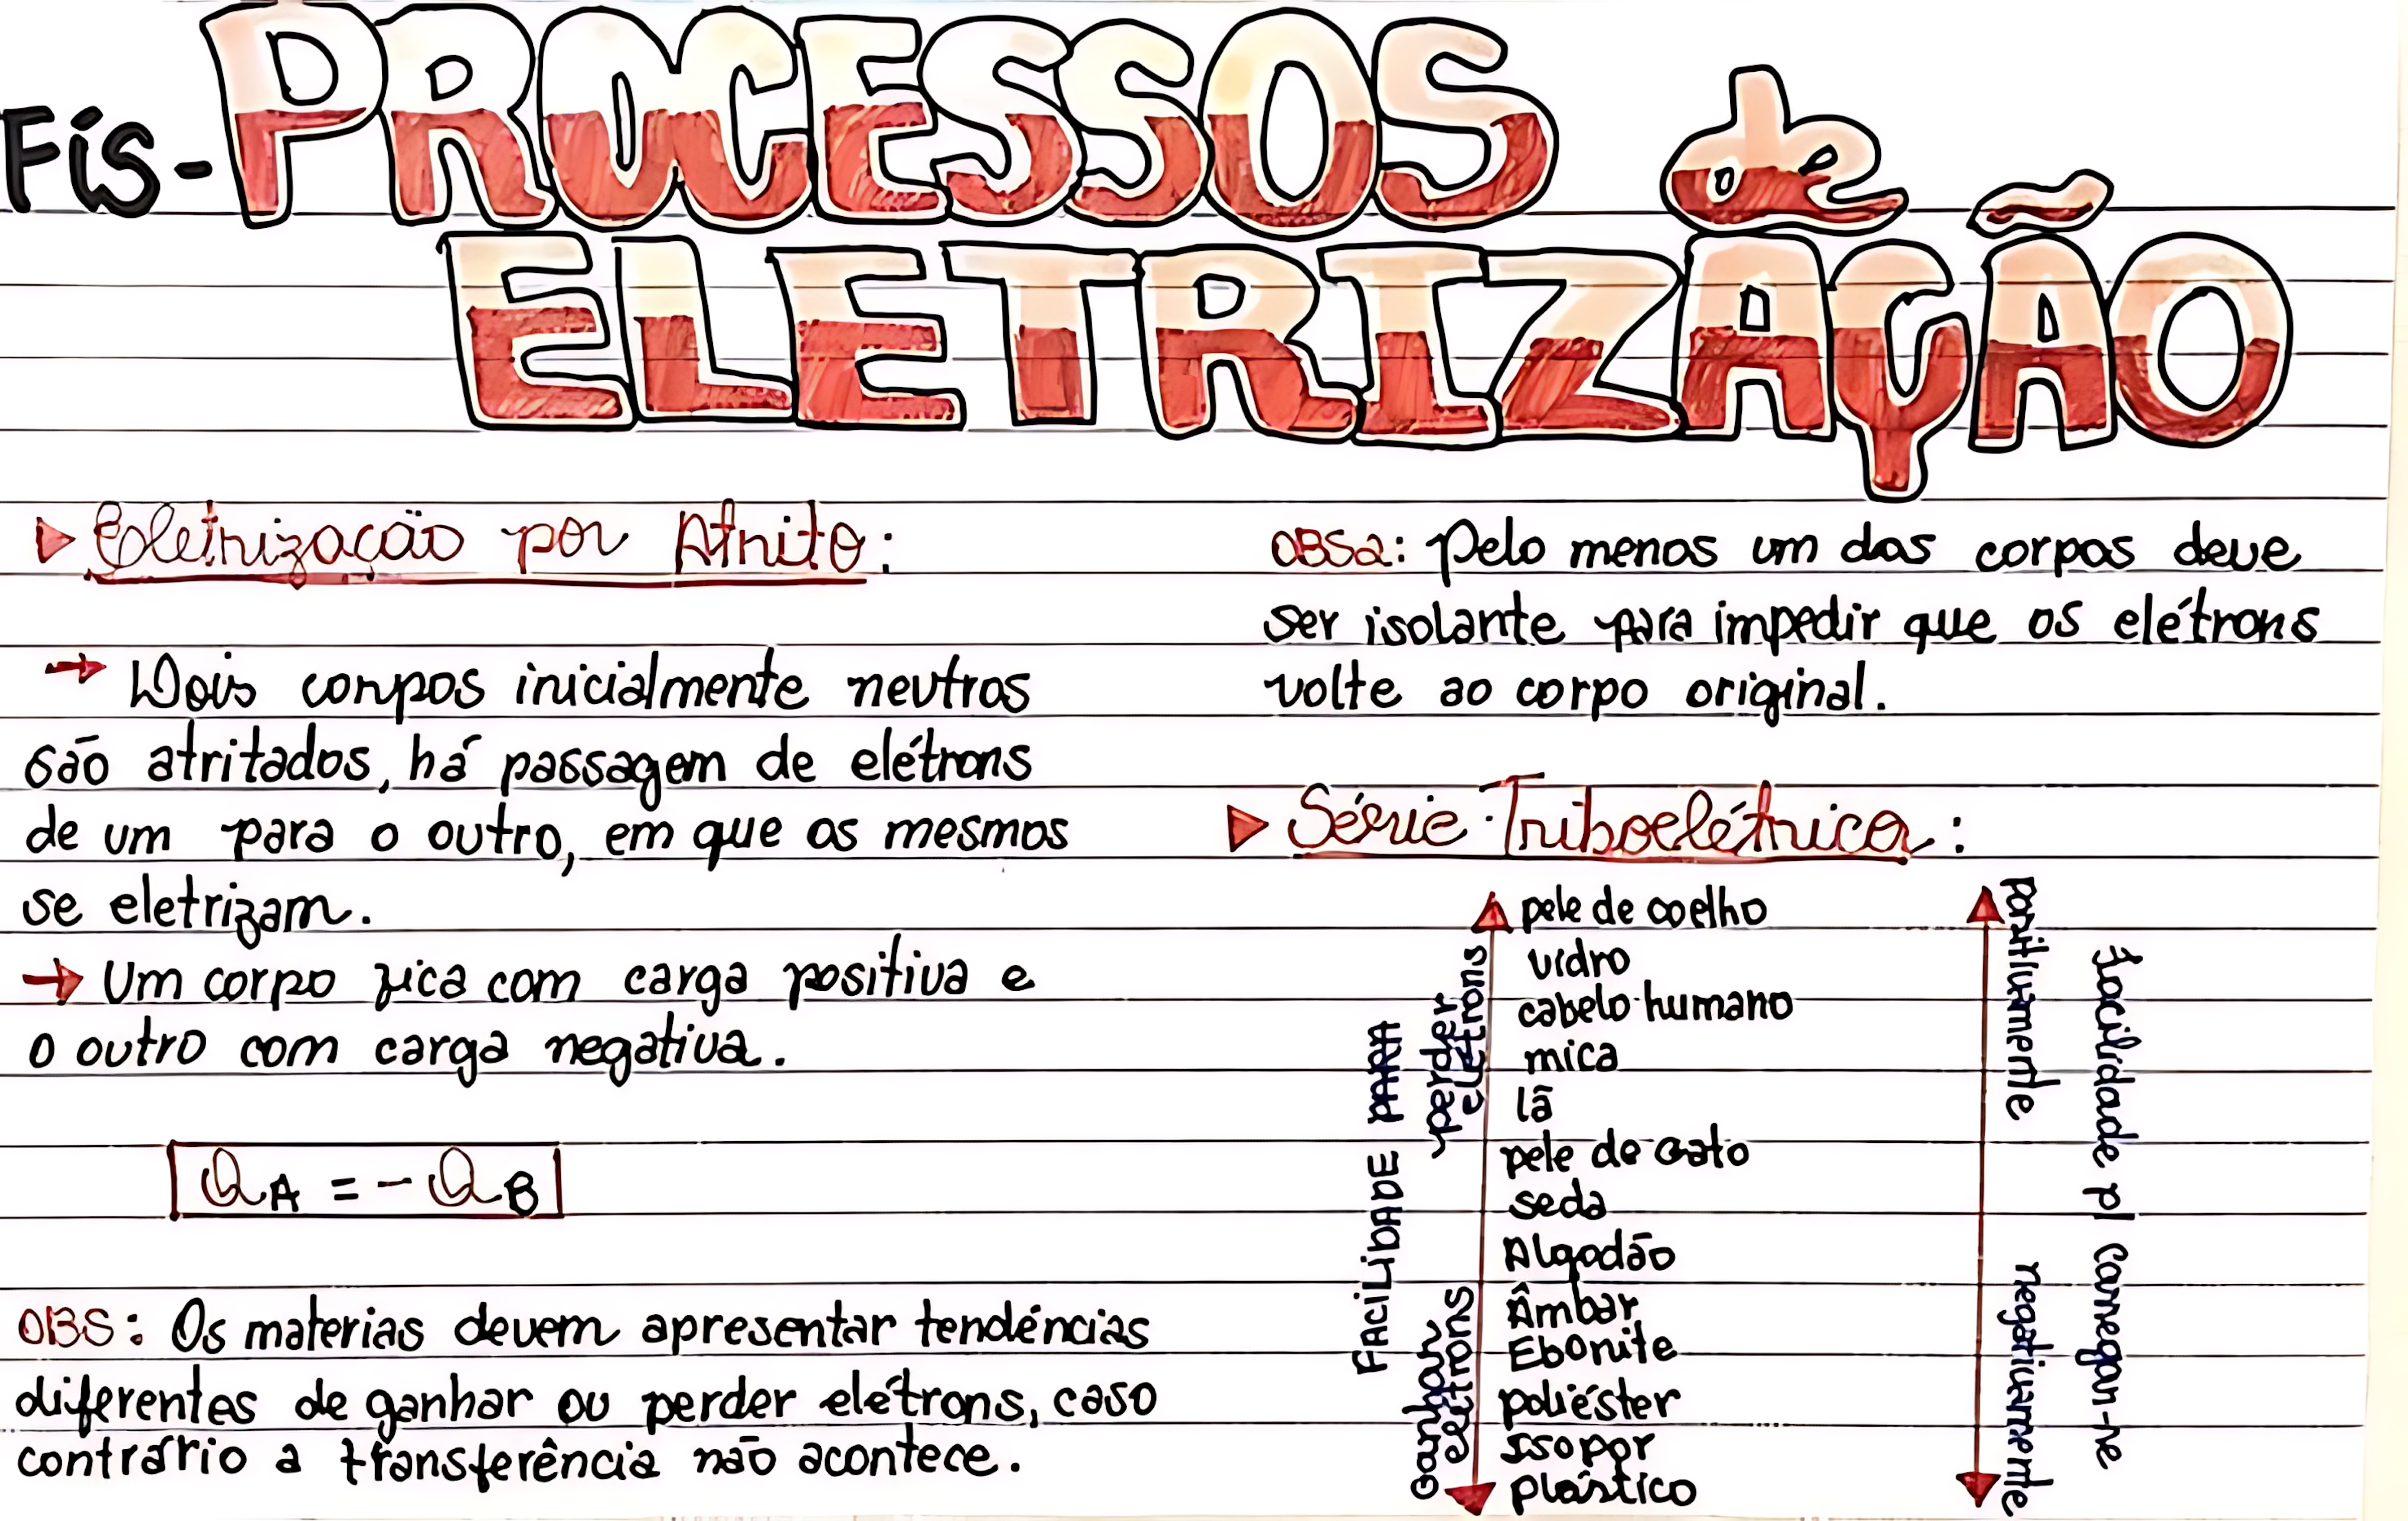 Fís- PROCESSOS de
ELETRIZAÇÃO
Eletrização por Atrito:
→ Dois corpos inicialmente neutros
são atritados, há passagem de elétrons
de um para o outro, em que os mesmos
se eletrizam.
→ Um corpo fica com carga positiva e
o outro com carga negativa.
QA = - QB
OBS: Os materias devem apresentar tendências
diferentes de ganhar ou perder elétrons, caso
contrário a transferência não acontece.
OBS2: Pelo menos um dos corpos deve
ser isolante para impedir que os elétrons
volte ao corpo original.
Série Triboelétrica:
FACILIDADE PARA
perder
elétrons
ganhar
elétrons
pele de coelho
vidro
cabelo humano
mica
lã
pele de gato
seda
Algodão
Âmbar
Ebonite
poliéster
isopor
plástico
positivamente
negativamente
facilidade p/ carregar-se